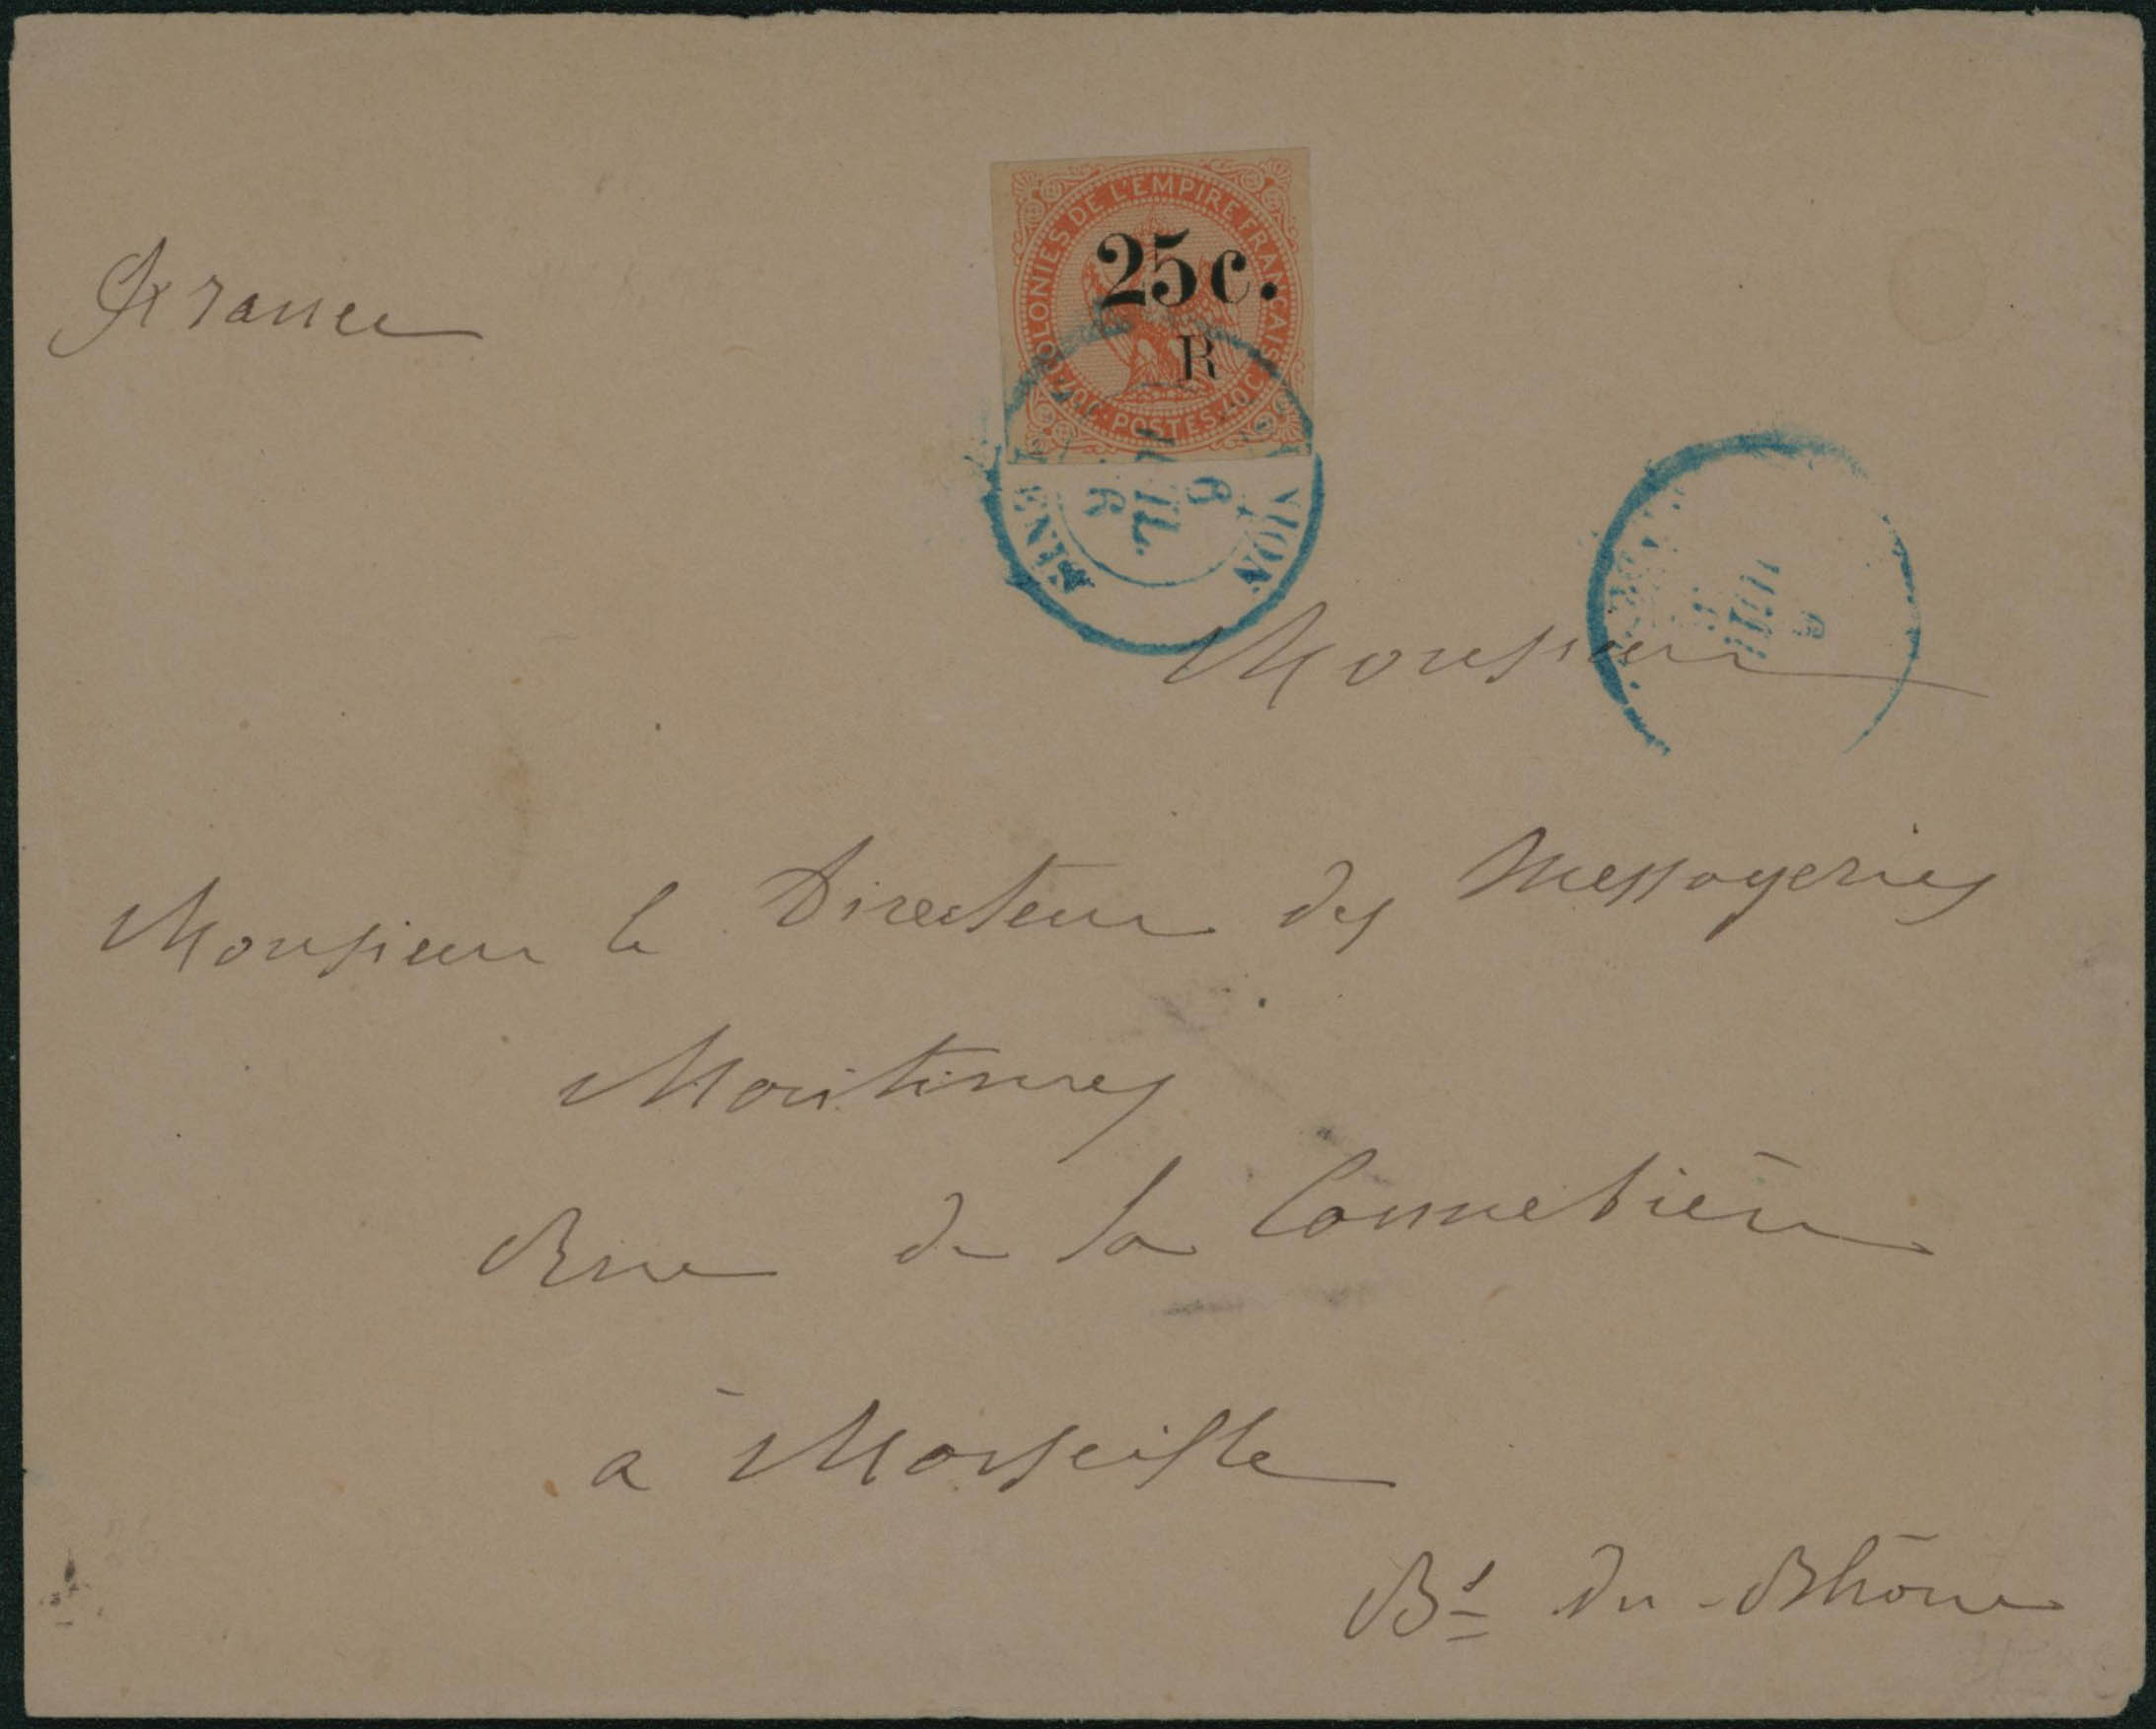 France
COLONIES DE L'EMPIRE FRANÇAISE
25 c.
R
40 C. POSTES. 40 C
NION
Monsieur
Monsieur le Directeur des Messageries
Maritimes
Rue de la Connebière
à Marseille
Bs du Rhône